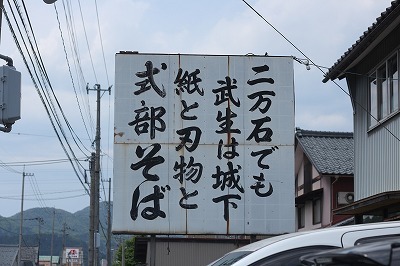 二万石でも
武生は城下
紙と刃物と
式部そば